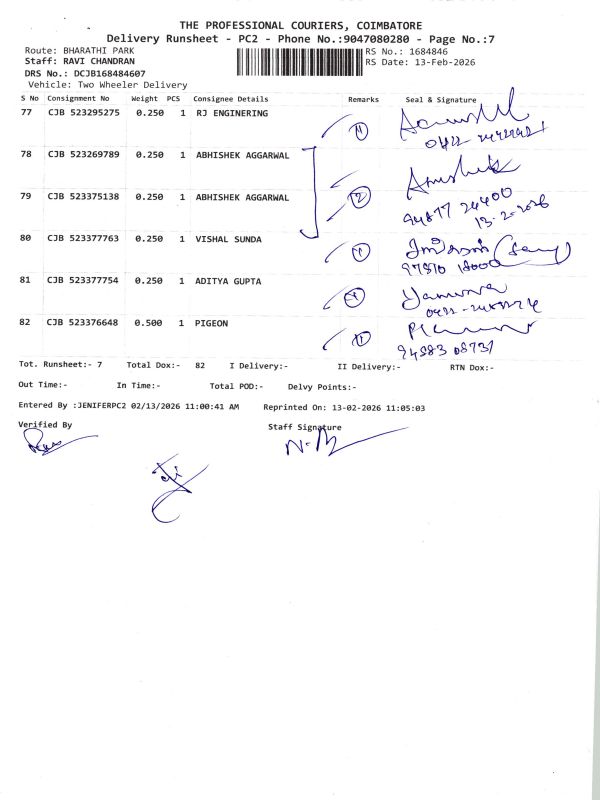 THE PROFESSIONAL COURIERS, COIMBATORE
Delivery Runsheet - PC2 - Phone No.:9047080280 - Page No.:7
Route: BHARATHI PARK RS No.: 1684846
Staff: RAVI CHANDRAN RS Date: 13-Feb-2026
DRS No.: DCJB168484607
Vehicle: Two Wheeler Delivery
S No Consignment No Weight PCS Consignee Details Remarks Seal & Signature
77 CJB 523295275 0.250 1 RJ ENGINERING
78 CJB 523269789 0.250 1 ABHISHEK AGGARWAL
79 CJB 523375138 0.250 1 ABHISHEK AGGARWAL 2
94877 24400
13-2-2026
80 CJB 523377763 0.250 1 VISHAL SUNDA
97870 18000
81 CJB 523377754 0.250 1 ADITYA GUPTA
Yamuna
82 CJB 523376648 0.500 1 PIGEON
94883 08731
Tot. Runsheet:- 7 Total Dox:- 82 I Delivery:- II Delivery:- RTN Dox:-
Out Time:- In Time:- Total POD:- Delvy Points:-
Entered By :JENIFERPC2 02/13/2026 11:00:41 AM Reprinted On: 13-02-2026 11:05:03
Verified By Staff Signature